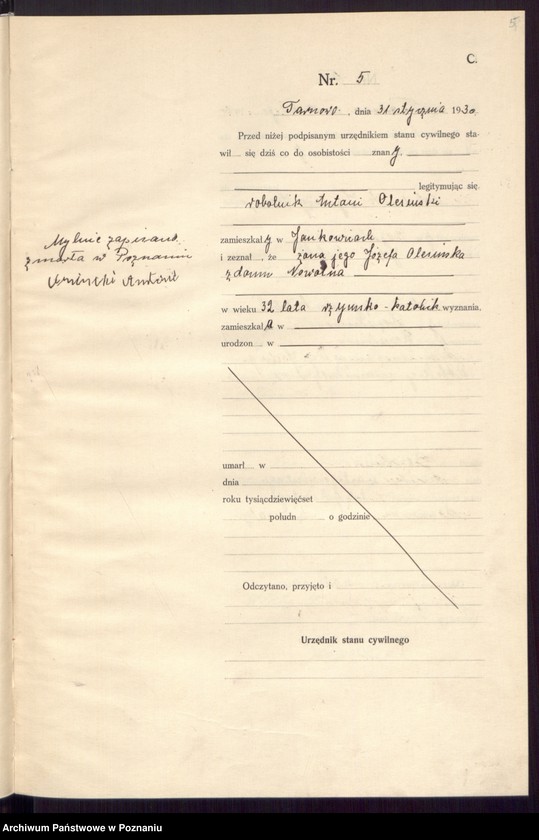 5
C.
Nr. 5
Tarnovo, dnia 31 stycznia 1930
Przed niżej podpisanym urzędnikiem stanu cywilnego sta-
wił się dziś co do osobistości znany.
legitymując się.
robotnik Antoni
zamieszkały w Jankowicach
i zeznał, że żona jego Józefa
z domu
w wieku 32 lata rzymsko-katolik wyznania.
zamieszkała w
urodzon w
Mylnie zapisano
zmarła w Poznaniu
umarł w
dnia
roku tysiącdziewięćset
połudn o godzinie
Odczytano, przyjęto i
Urzędnik stanu cywilnego
Archiwum Państwowe w Poznaniu